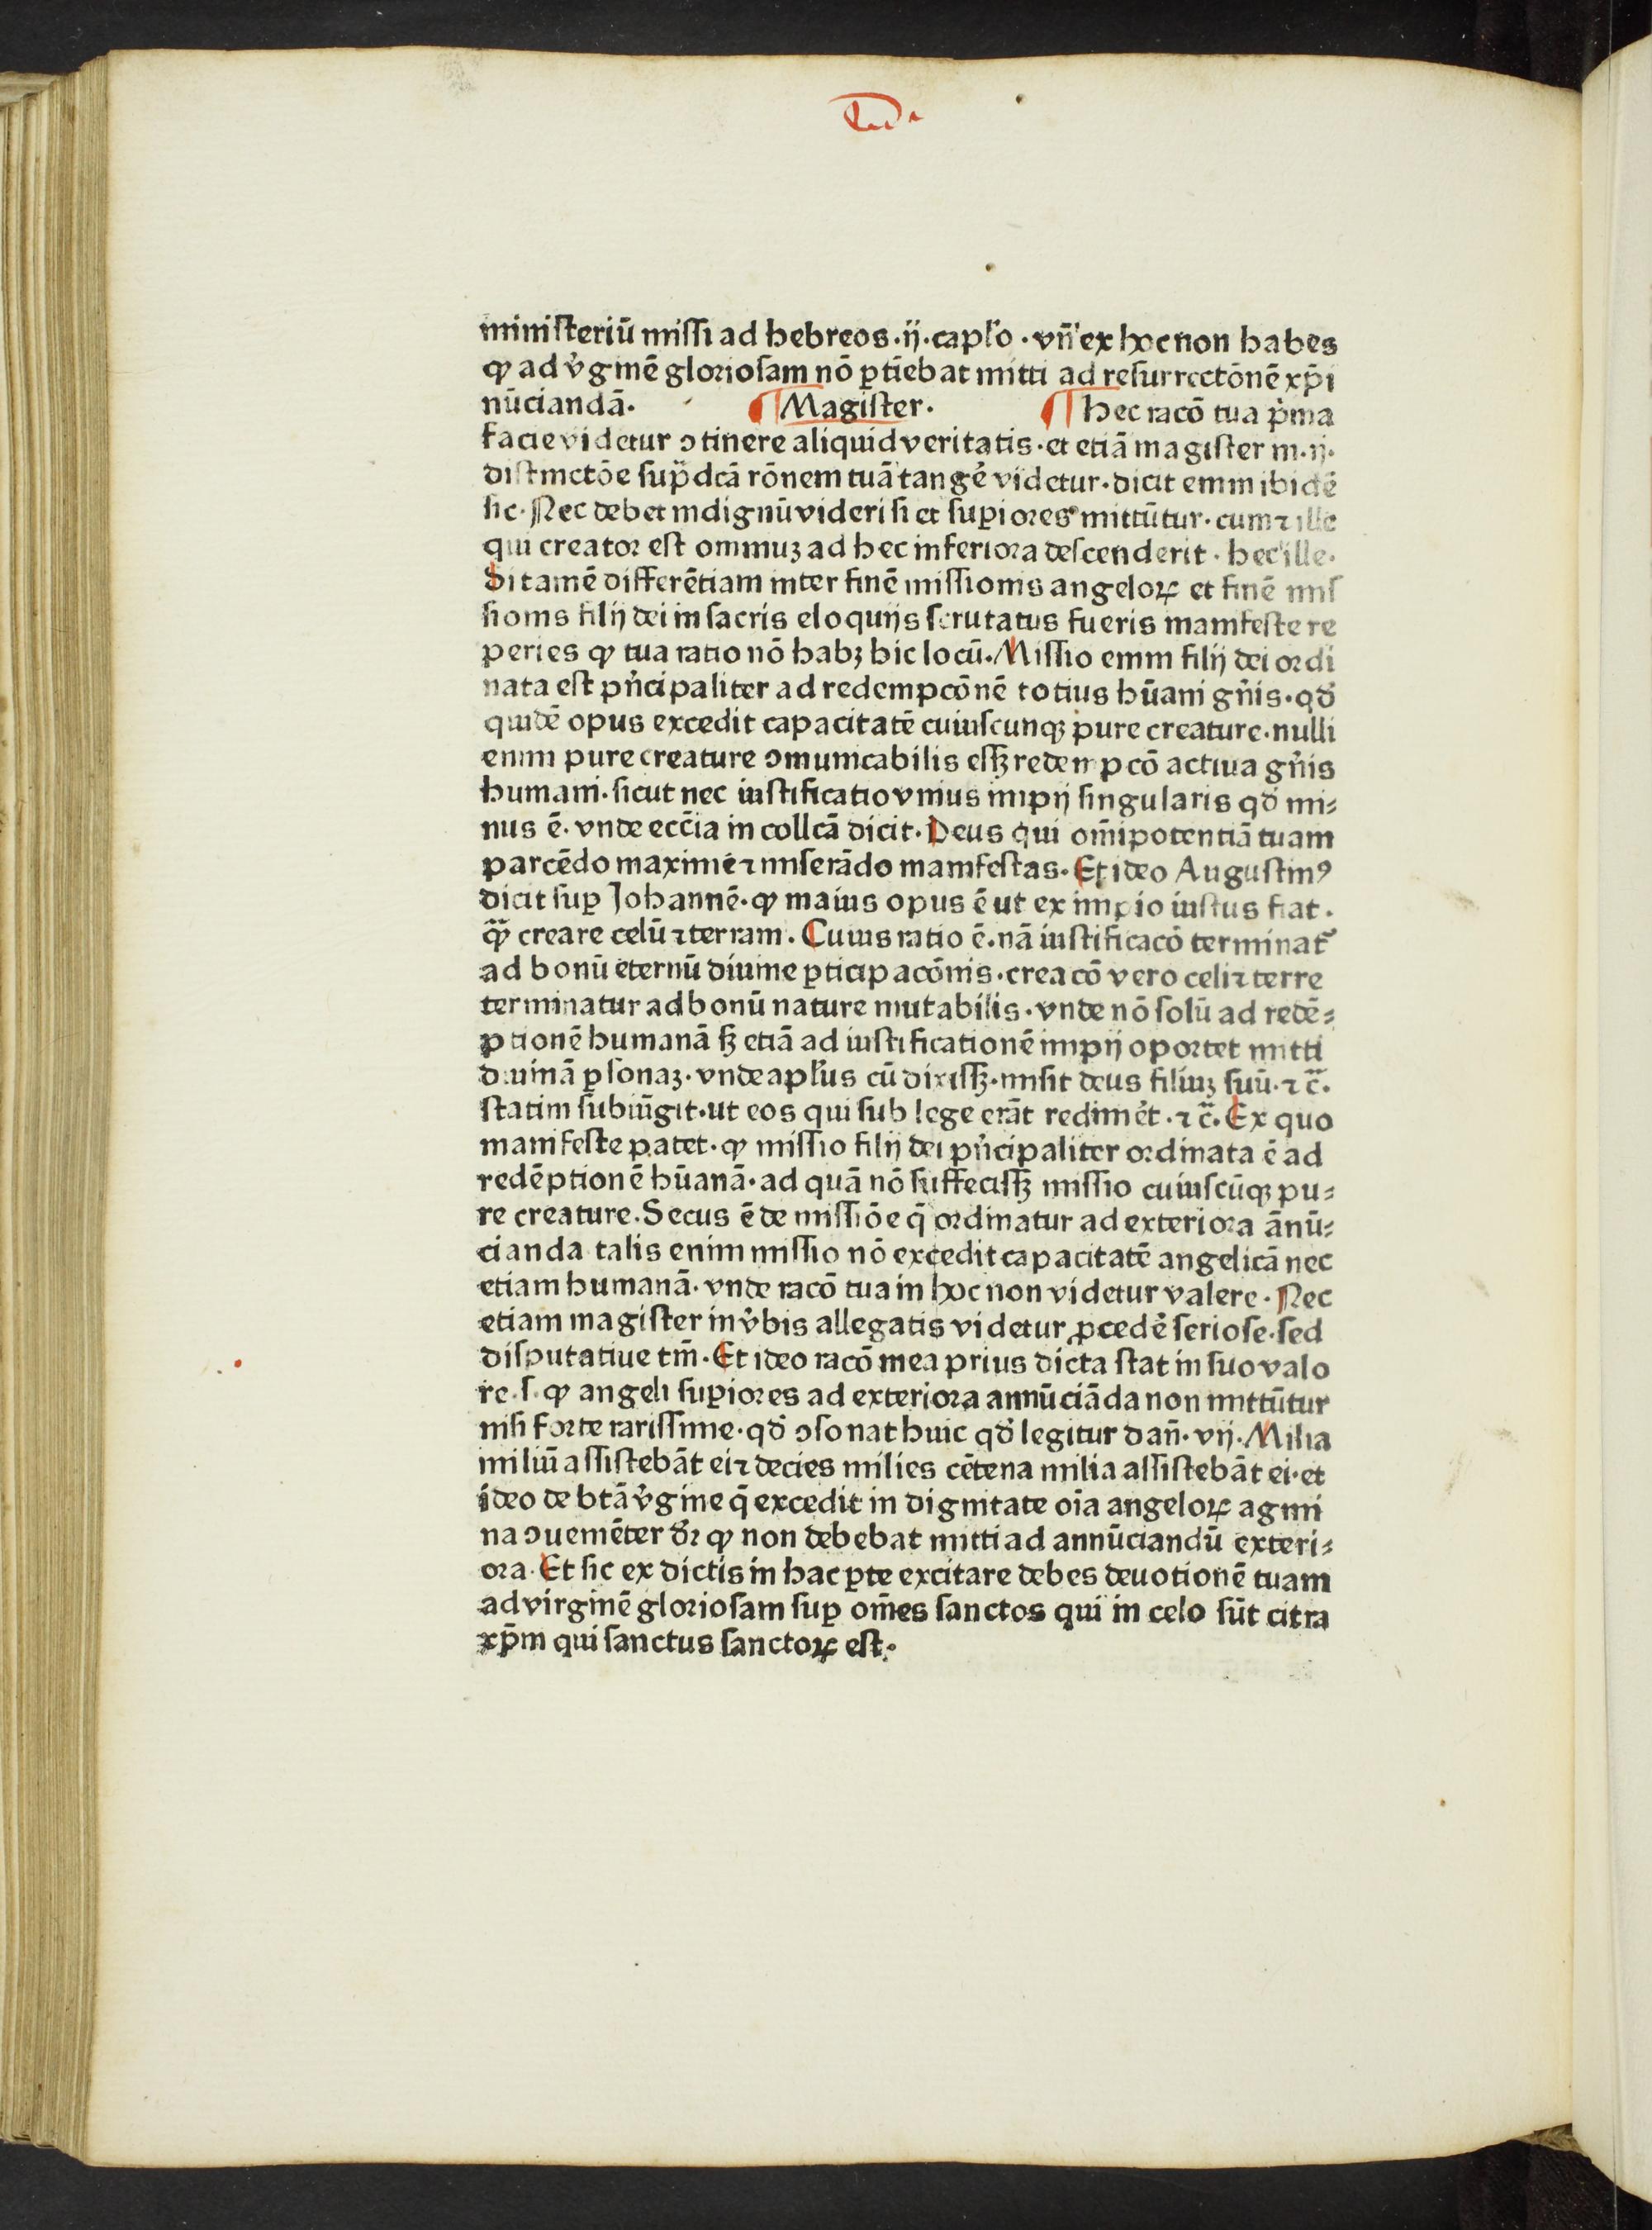 ministeriū missi ad hebreos·ij·caplo·vn̄ ex hoc non habes
ꝙ ad v̓ginē gloriosam nō ꝑtīebat mitti ad resurrectōnē xp̄i
nūciandā. ¶ Magister. ¶ Hec racō tua p̓ma
facie videtur ↄtinere aliquid veritatis·et etiā magister in·ij·
distinctōe sup̄dcā rōnem tuā tangē videtur·dicit enim ibidē
sic·Nec debet indignū videri si et suꝑiores mittūtur·cum ⁊ ille
qui creator est omniuꝫ ad hec inferiora descenderit·hec ille·
Si tamē differētiam inter finē missionis angeloꝝ et finē mis
sionis filij dei in sacris eloquijs scrutatus fueris manifeste re
peries ꝙ tua ratio nō habꝫ hic locū. Missio enim filij dei ordi
nata est pn̓cipaliter ad redempcōnē totius hūani gn̄is·qd̓
quidē opus excedit capacitatē cuiuscunqꝫ pure creature·nulli
enim pure creature ↄmunicabilis essꝫ redempcō actiua gn̄is
humani·sicut nec iustificatio vnius impij singularis qd̓ mi⸗
nus ē·vnde eccīa in collcā dicit·Deus qui om̄ipotentiā tuam
parcēdo maxime ⁊ miserādo manifestas·Et ideo Augustinꝰ
dicit suꝑ Johannē·ꝙ maius opus ē ut ex impio iustus fiat·
ꝙ̄ creare celū ⁊ terram. Cuius ratio ē·nā iustificacō terminat᷑
ad bonū eternū diuine ꝑticipacōnis·creacō vero celi ⁊ terre
terminatur ad bonū nature mutabilis·vnde nō solū ad redē⸗
ptionē humanā sꝫ etiā ad iustificationē impij oportet mitti
diuinā ꝑsonaꝫ·vnde apl̓us cū dixissꝫ·misit deus filiuꝫ suū·⁊ c̄·
statim subiūgit·ut eos qui sub lege erāt redimēt·⁊ c̄·Ex quo
manifeste patet·ꝙ missio filij dei pn̓cipaliter ordinata ē ad
redēptionē hūanā·ad quā nō suffecissꝫ missio cuiuscūqꝫ pu⸗
re creature. Secus ē de missiōe q̄ ordinatur ad exteriora ānū⸗
cianda talis enim missio nō excedit capacitatē angelicā nec
etiam humanā·vnde racō tua in hoc non videtur valere·Nec
etiam magister in v̓bis allegatis videtur ꝓcedē seriose·sed
disputatiue tm̄·Et ideo racō mea prius dicta stat in suo valo
re·s·ꝙ angeli suꝑiores ad exteriora annūciāda non mittūtur
nisi forte rarissime·qd̓ ↄsonat huic qd̓ legitur dan̄·vij·Milia
miliū assistebāt ei ⁊ decies milies cētena milia assistebāt ei·et
ideo de btā v̓gine q̄ excedit in dignitate oīa angeloꝝ agmi
na ↄueniēter dr̄ ꝙ non debebat mitti ad annūciandū exteri⸗
ora·Et sic ex dictis in hac ꝑte excitare debes deuotionē tuam
ad virginē gloriosam suꝑ om̄es sanctos qui in celo sūt citra
xp̄m qui sanctus sanctoꝝ est·